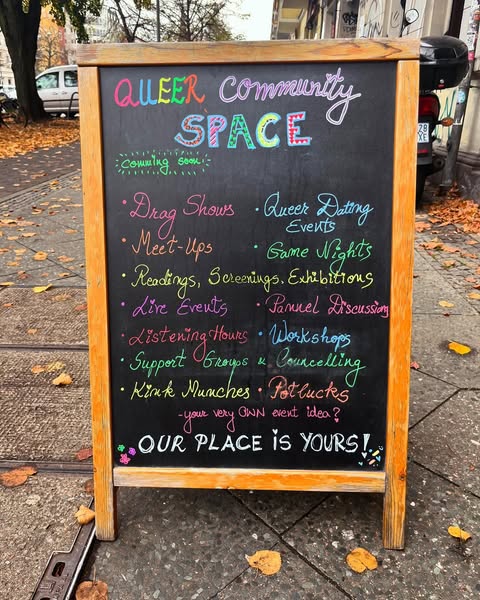 QUEER Community
SPACE
Comming soon!
• Drag Shows
• Queer Dating
Events
• Meet-Ups
• Game Nights
• Readings, Screenings, Exhibitions
• Live Events
• Pannel Discussion
• Listening Hours
• Workshops
• Support Groups & Councelling
• Kink Munches
• Potlucks
-your very OWN event idea?
OUR PLACE iS YOURS!